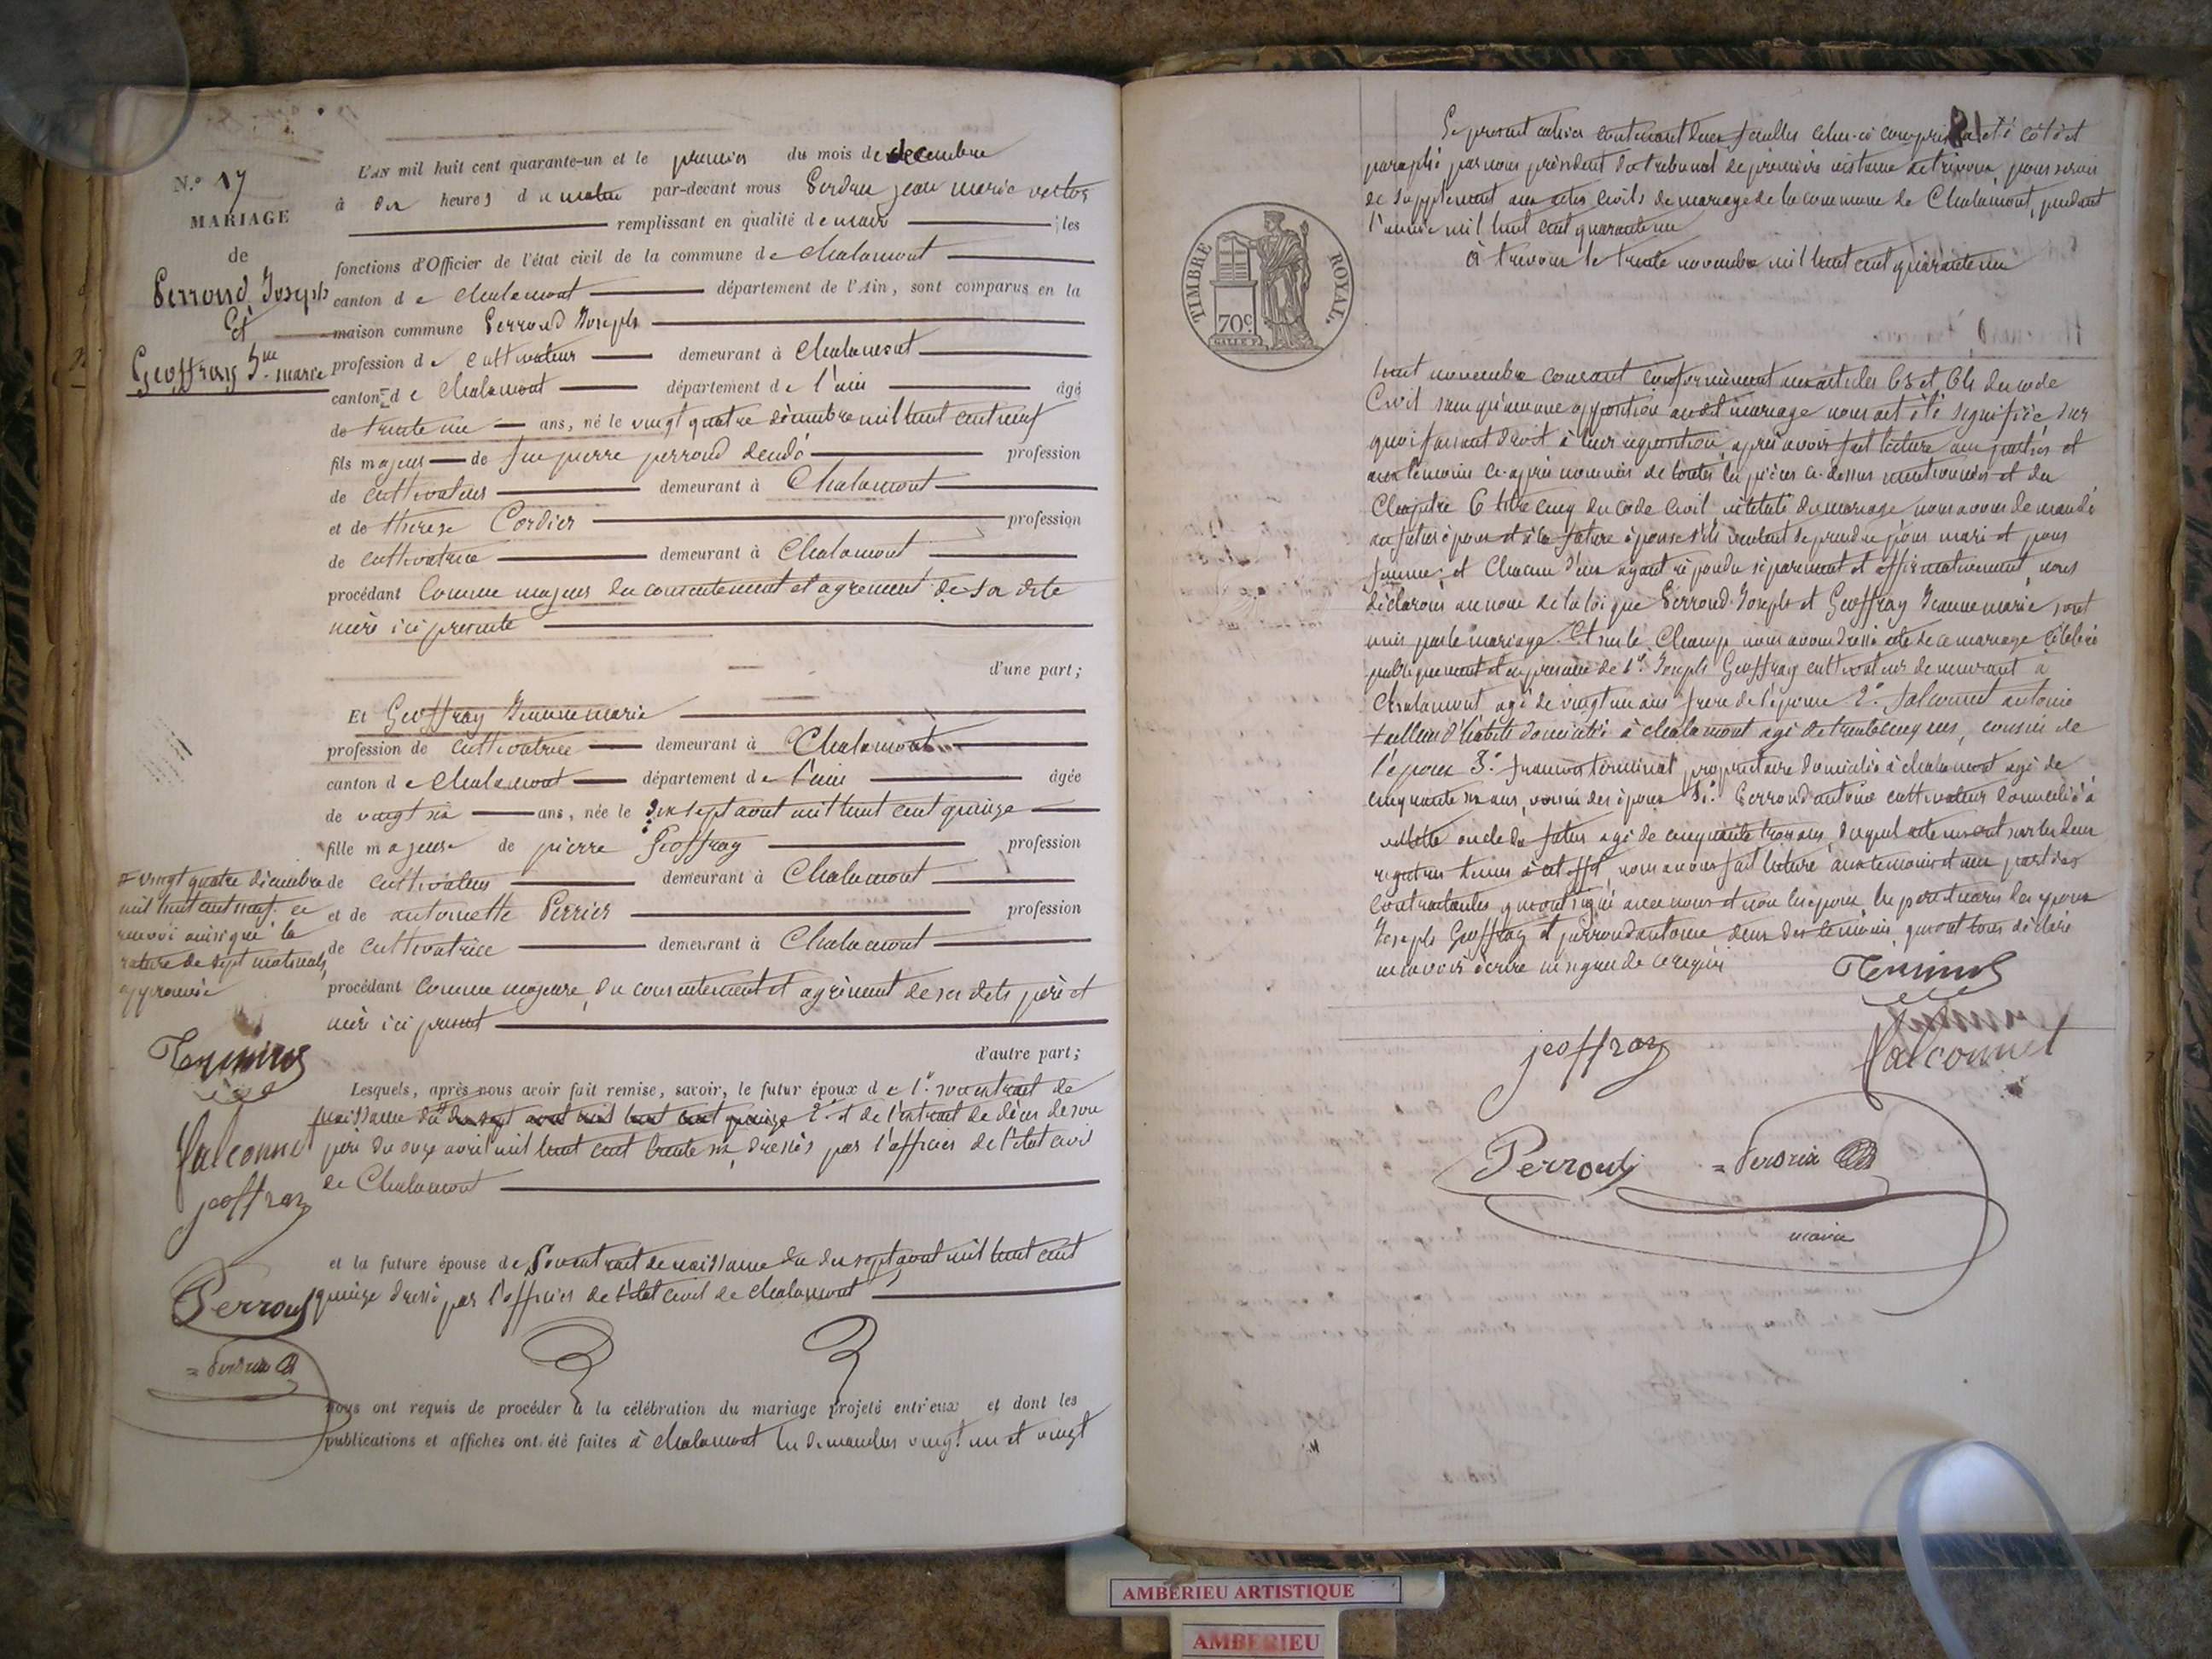 N.° 17
MARIAGE
de
Perroud Joseph
Et
Geoffray J.ne marie
L'AN mil huit cent quarante-un et le premier du mois de decembre
à dix heures du matin par-devant nous Perdrix jean marie victor
remplissant en qualité de maire les
fonctions d'Officier de l'état civil de la commune de chalamont
canton de chalamont département de l'Ain, sont comparus en la
maison commune Perroud Joseph
profession de cultivateur demeurant à chalamont
canton de chalamont département de l'ain âgé
de trente un ans, né le vingt quatre décembre mil huit cent neuf
fils majeur de feu pierre perroud décédé profession
de cultivateur demeurant à Chalamont
et de therese Cordier profession
de cultivatrice demeurant à Chalamont
procédant comme majeur du consentement et agrement de sa dite
mère ici presente
d'une part;
Et Geoffray Jeanne marie
profession de cultivatrice demeurant à Chalamont
canton de chalamont département de l'ain âgée
de vingt six ans, née le dix sept aout mil huit cent quinze
fille majeure de pierre Geoffray profession
de cultivateur demeurant à Chalamont
et de antoinette Perrier profession
de cultivatrice demeurant à Chalamont
procédant comme majeure, du consentement et agrément de ses dits père et
mère ici present
d'autre part;
Lesquels, après nous avoir fait remise, savoir, le futur époux de 1.° son extrait de
naissance du dix sept aout mil huit cent quinze 2.° et de l'extrait de décès de son
père du onze avril mil huit cent trente six, dressés par l'officier de l'état civil
de Chalamont
et la future épouse de son extrait de naissance du dix sept aout mil huit cent
quinze dressé par l'officier de l'état civil de chalamont
nous ont requis de procéder à la célébration du mariage projeté entr'eux et dont les
publications et affiches ont été faites à chalamont les dimanches vingt un et vingt
# vingt quatre décembre
mil huit cent neuf. ce
renvoi ainsi que la
rature de sept mots nuls
approuvés
Terminos
falconnet
jeoffray
Perroud
= Perdrix
81
Le present cahier contenant deux feuilles celui-ci compris a été coté et
paraphé par nous président du tribunal de première instance de trévoux, pour servir
de supplément aux actes civils de mariage de la commune de Chalamont, pendant
l'année mil huit cent quarante un
à trevoux le trente novembre mil huit cent quarante un
TIMBRE ROYAL.
70c.
huit novembre courant conformément aux articles 63 et 64 du code
Civil sans qu'aucune opposition audit mariage nous ait été signifiée sur
quoi faisant droit à leur réquisition, après avoir fait lecture aux parties et
aux témoins ci-après nommés de toutes les pièces ci-dessus mentionnées et du
Chapitre 6 titre cinq du code Civil intitulé du mariage nous avons demandé
au futur époux et à la future épouse s'ils veulent se prendre pour mari et pour
femme, et Chacun d'eux ayant répondu séparément et affirmativement, nous
déclarons au nom de la loi que Perroud Joseph et Geoffray Jeanne marie sont
unis par le mariage. Et sur le Champ nous avons dressé acte de ce mariage célébré
publiquement et en presence de 1.° Joseph Geoffray cultivateur demeurant à
Chalamont agé de vingt un ans frere de l'épouse 2.° falconnet antoine
tailleur d'habits domicilié à chalamont agé de trente cinq ans, cousin de
l'époux 3.° francois terminat propriétaire domicilié à chalamont agé de
cinquante six ans, voisin des époux 4.° Perroud antoine cultivateur domicilié à
villette oncle du futur agé de cinquante trois ans, duquel acte inscrit sur les deux
registres tenus à cet effet, nous avons fait lecture aux témoins et aux parties
contractantes
Joseph Geoffray et perroud antoine deux des témoins, qui ont tous déclaré
ne savoir écrire ni signer de ce requis
falconnet
jeoffray
Perroud
= Perdrix
maire
AMBERIEU ARTISTIQUE
AMBERIEU